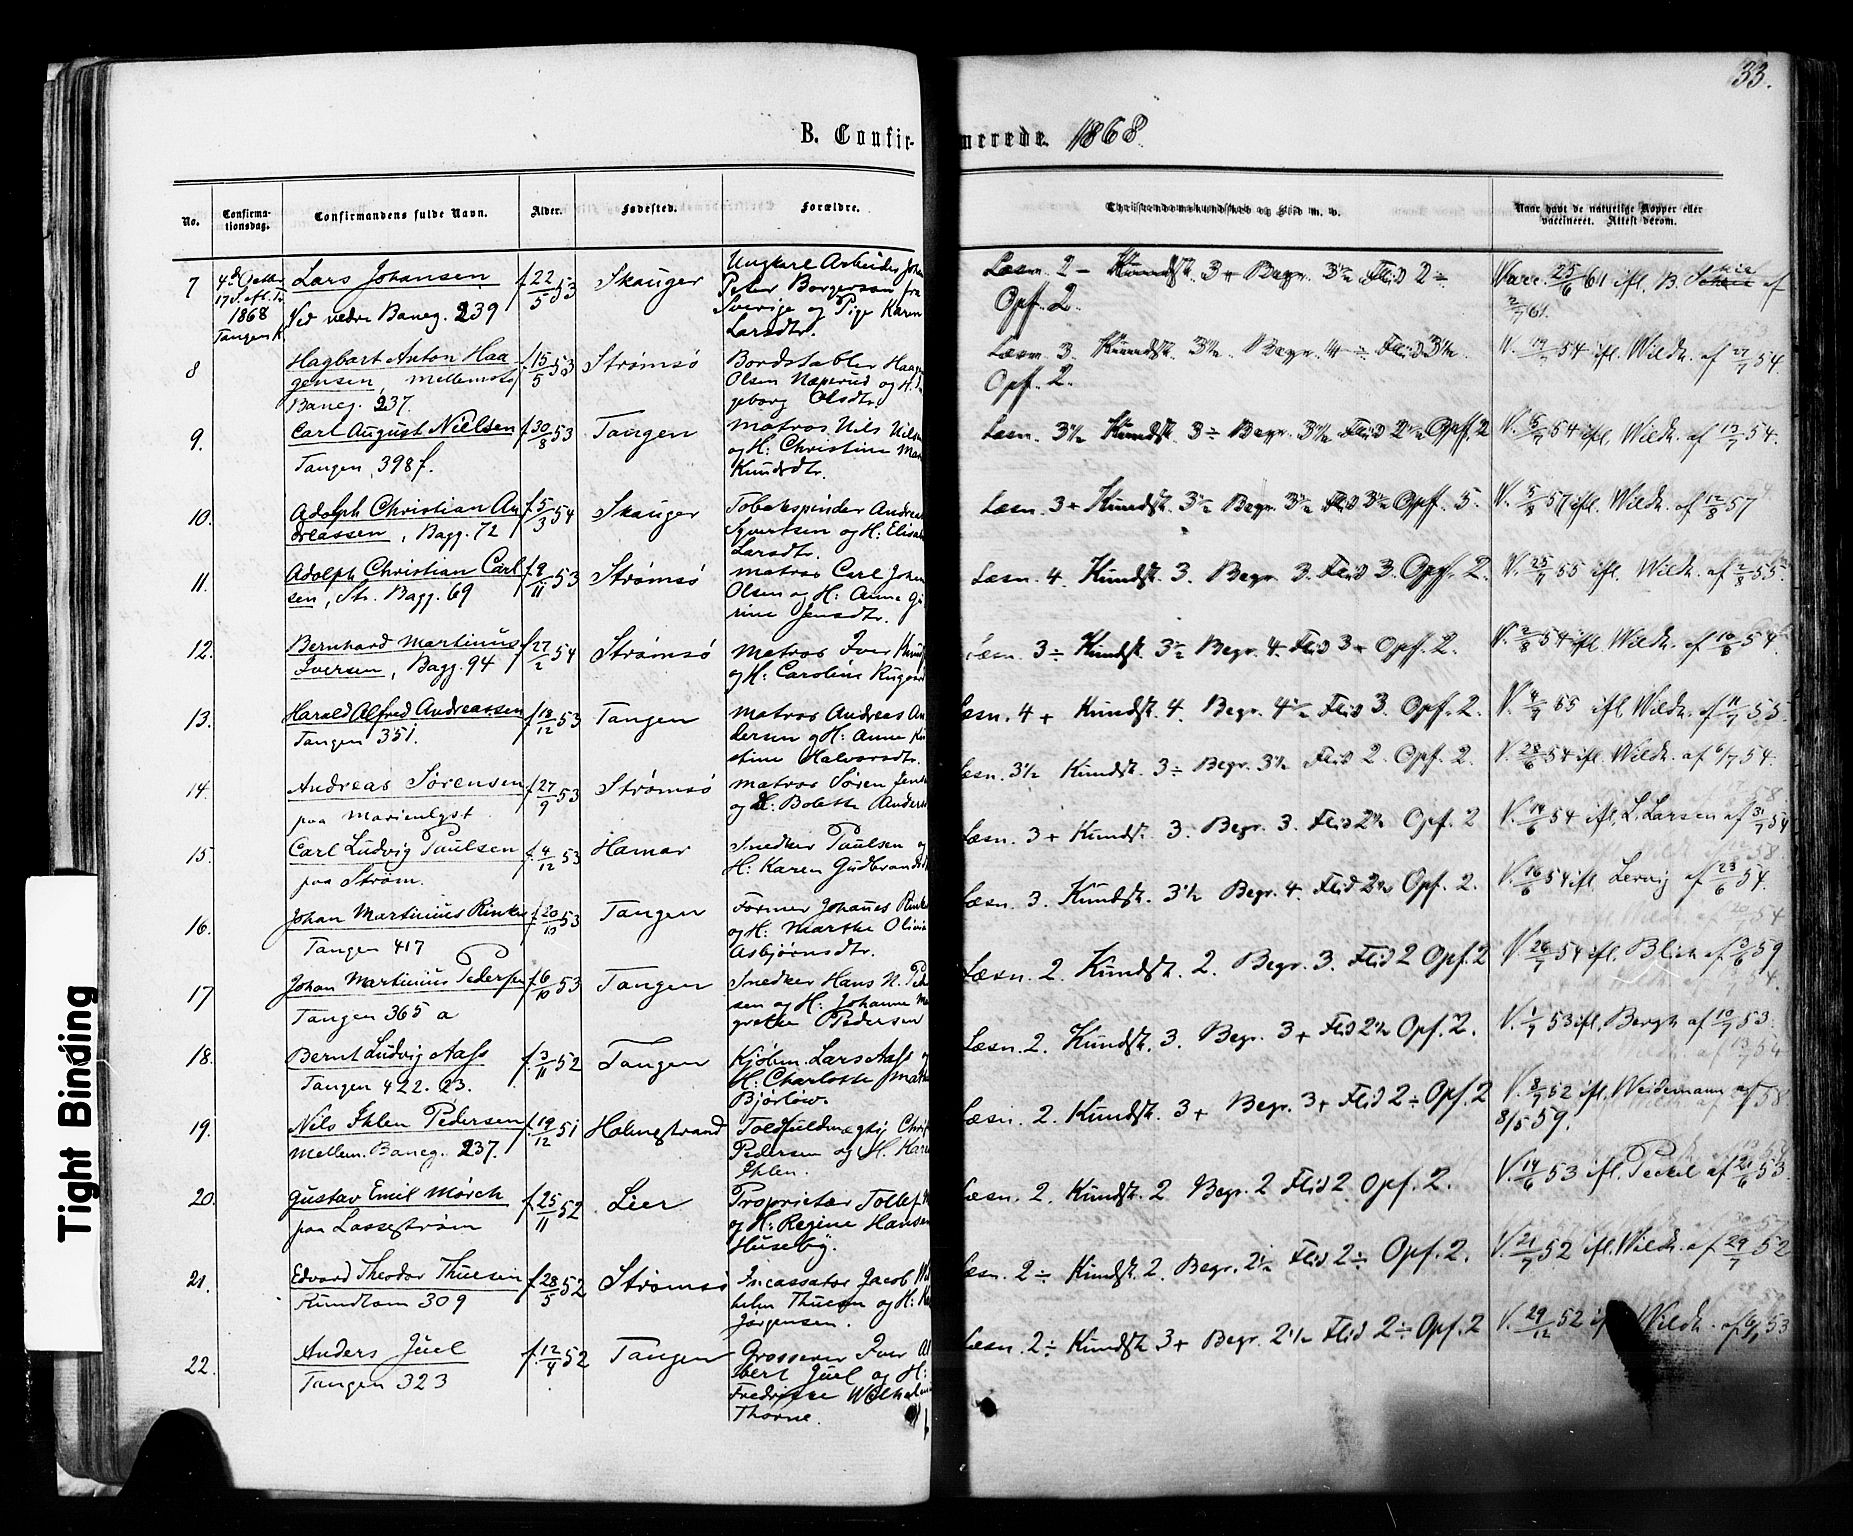 33.
B. Confirmerede. 1868.
No. Confirmationsdag. Confirmandens fulde Navn. Alder. Fødested. Forældre. Christendomskundskab og Flid m. v. Naar havt de naturlige Kopper eller vaccineret. Attest derom.
7 4de Octbr Lars Johansen f. 22/5 53 Skauger Ungkarl Arbeider Joh Læsn. 2 - Kundsk. 3+ Begr. 3½ Flid 2 ÷ Vacc. 25/6 61 ifl. B. af
17 S. eft. Tr. Ved nedre Baneg. 239 Peter Borgerson fra Opf. 2. 2/7 61.
1868 Sverige og Pige Karen
Tangen K. Larsdtr.
8 Hagbart Anton Haa f. 15/5 53 Strømsø Bordstabler Haag Læsn. 3. Kundsk. 3½. Begr. 4 ÷ Flid 3½. V. 19/7 54 ifl. Wildh. af 27/7 54.
gensen, mellemste Olsen Næperud og H. In Opf. 2.
Baneg. 237. geborg Olsdtr.
9. Carl August Nielsen f. 30/8 53 Tangen Matros Nils Nils Læsn. 3½ Kundsk. 3 ÷ Begr. 3½ Flid 2½ Opf. 2 V. 5/7 54 ifl. Wildh. af 13/7 54.
Tangen, 398 f. og H. Christine Mar
Knudsdtr.
10. Adolph Christian An f. 5/3 54 Skauger Tobakspinder Andreas Læsn. 3+ Kundsk. 3½ Begr. 3½ Flid 3½ Opf. 5. V. 5/8 57 ifl. Wildh. af 12/8 57
dreassen, Bagg. 72 Syvertsen og H. Elisa
Larsdtr.
11. Adolph Christian Carl f. 9/11 53 Strømsø Matros Carl Joha Læsn. 4. Kundsk. 3. Begr. 3. Flid 3. Opf. 2. V. 25/7 55 ifl. Wildh. af 2/8 55.
sen, Str. Bagg. 69 Olsen og H: Anne Gu
rine Jensdtr.
12. Bernhard Martinus f. 27/2 54 Strømsø Matros Iver Knud Læsn. 3 ÷ Kundsk. 3½ Begr. 4. Flid 3+ Opf. 2. V. 2/8 54 ifl. Wildh. af 10/8 54.
Iversen, Bagg. 94 og H: Caroline
13. Harald Alfred Andreassen f. 18/12 53 Tangen Matros Andreas An Læsn. 4+ Kundsk. 4. Begr. 4½ Flid 3. Opf. 2. V. 4/7 55 ifl. Wildh. af 11/7 55.
Tangen 351. dersen og H: Anne Ki
stine Halvorsdtr.
14. Andreas Sørensen f. 27/9 53 Strømsø Matros Søren Jens Læsn. 3½ Kundsk. 3 ÷ Begr. 3½ Flid 2. Opf. 2. V. 28/6 54 ifl. Wildh. af 6/7 54.
paa Marienlyst. og H. Bolette Anders
15. Carl Ludvig Paulsen f. 4/12 53 Hamar Snedker Paulsen og Læsn. 3+ Kundsk. 3. Begr. 3. Flid 2½ Opf. 2 V. 14/6 54 ifl. L. Larsen af 31/7 54
paa Strøm. H: Karen Gudbrandsd
16. Johan Martinius Rinke f. 20/10 53 Tangen Former Johanes Rinke Læsn. 3. Kundsk. 3½ Begr. 4. Flid 2½ Opf. 2. V. 16/6 54 ifl. Lervig af 23/6 54.
Tangen 417 og H. Marthe Olivia
Asbjørnsdtr.
17 Johan Martinius Pedersen f. 6/10 53 Tangen Snedker Hans N. Pede Læsn. 2. Kundsk. 2. Begr. 3. Flid 2 Opf. 2 V. 26/7 54 ifl. Blich af 3/6 59
Tangen 365 a sen og H. Johanne Ma
grethe Pedersen
18. Bernt Ludvig Aass f. 3/11 52 Tangen Kjøbm. Lars Aass og Læsn. 2. Kundsk. 3. Begr. 3+ Flid 2½ Opf. 2. V. 1/7 53 ifl. Bergh af 10/7 53.
Tangen 422. 23. H. Charlotte Mat
Bjørlow.
19. Nils Ihlen Pedersen f. 19/12 51 Holmestrand Toldfuldmægtig Chri Læsn. 2. Kundsk. 3+ Begr. 3+ Flid 2 ÷ Opf. 2 V. 8/7 52 ifl. Weidemann af
Mellem. Baneg. 237. Pedersen og H. Kare 8/5 59.
Ihlen.
20. Gustav Emil Mörch f. 25/11 52 Lier Proprietær Læsn. 2. Kundsk. 2 Begr. 2 Flid 2. Opf. 2. V. 14/6 53 ifl. Peckel af 21/6 53.
paa Lassestrøm og H: Regine Hansen
Huseby.
21. Edvard Theodor Thuesen f. 28/5 52 Strømsø Incassator Jacob Wil Læsn. 2 ÷ Kundsk. 2. Begr. 2½ Flid 2 ÷ Opf. 2. V. 21/7 52 ifl. Wildh. af 29/7 52
Rundtom 309 helm Thuesen og H: Ka
Jørgensen.
22. Anders Juel f. 12/4 52 Tangen Grosserer Iver Al Læsn. 2 ÷ Kundsk. 3+ Begr. 2½ Flid 2 ÷ Opf. 2 V. 29/12 52 ifl. Wildh. af 6/1 53
Tangen 323 bert Juel og H:
Fredrikke Wilhelm
Thorne.
Tight Binding